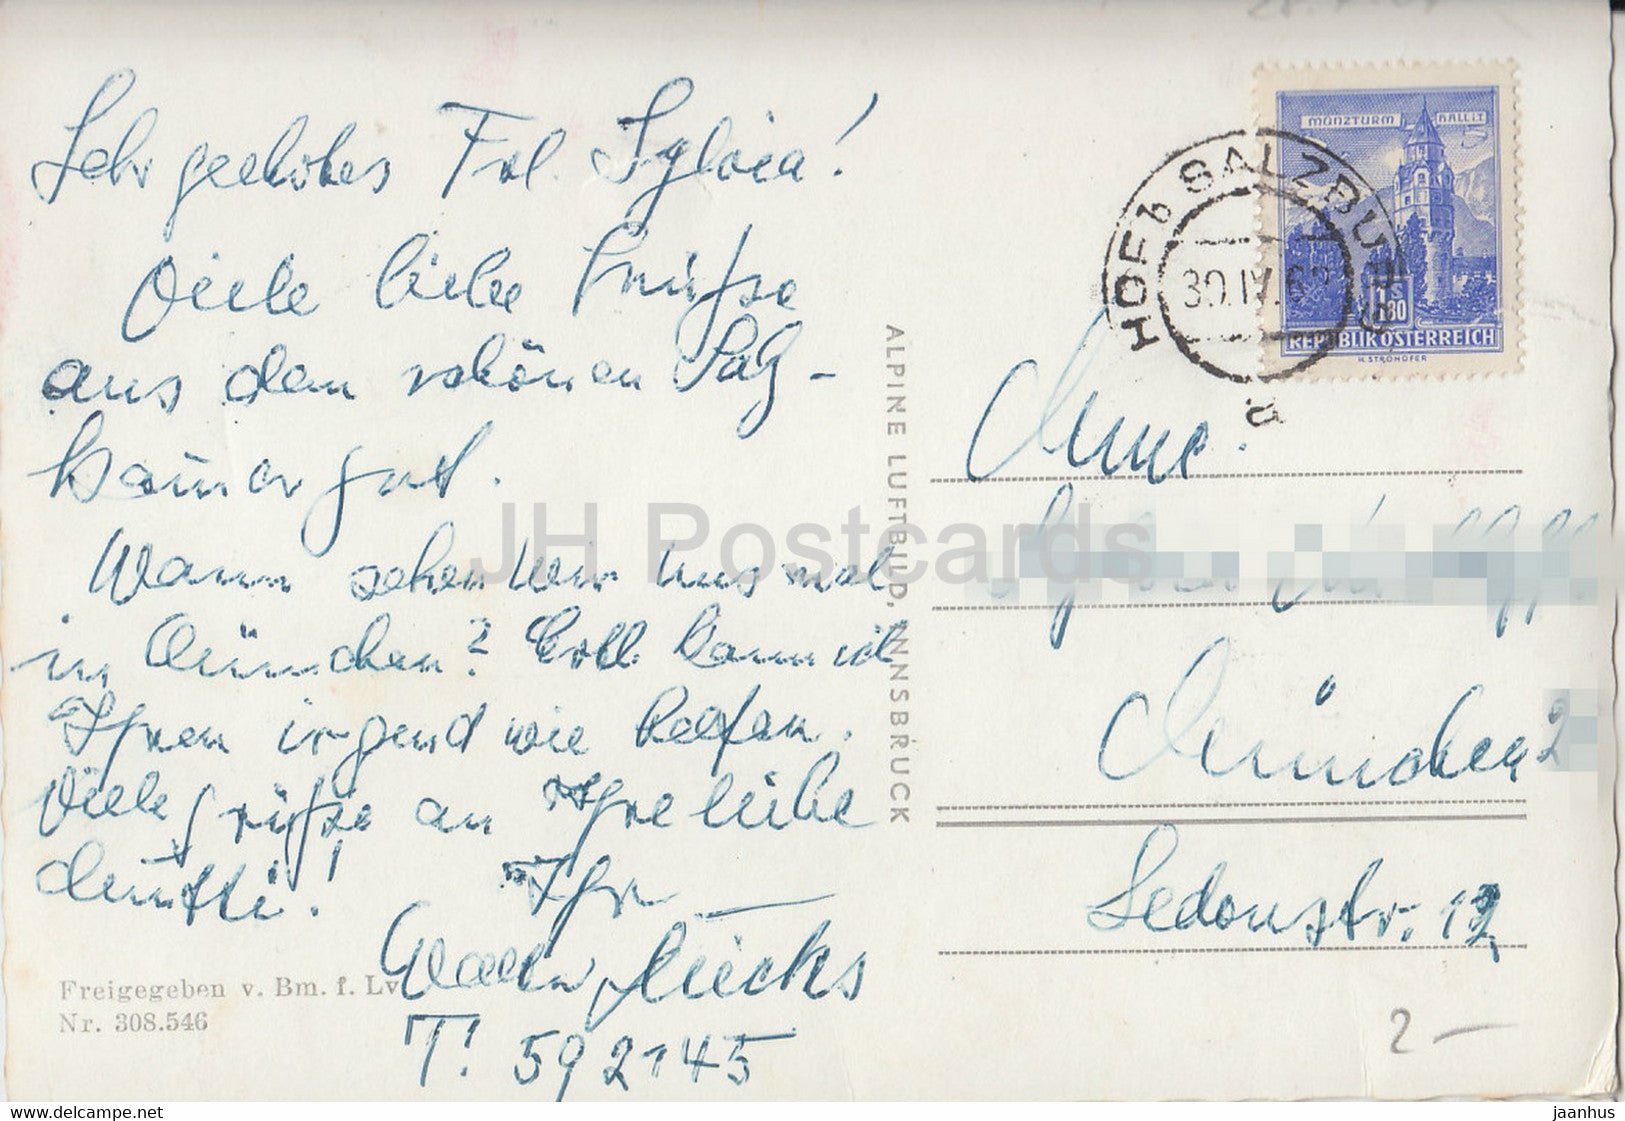 Sehr geehrtes Frl. Sylvia!
Viele liebe Grüße
aus dem schönen Salz-
kammergut.
Wann sehen wir uns mal
in München? Evtl. kann ich
Ihnen irgend wie helfen.
Viele Grüße an Ihre liebe
Mutti! Ihr
T: 592145
Freigegeben v. Bm. f. Lv
Nr. 308.546
ALPINE LUFTBILD, INNSBRUCK
HOF b SALZBURG
30.IV.62
a
MÜNZTURM HALL i.T.
1 S
1.80
REPUBLIK ÖSTERREICH
H. STROHOFER
München 2
Sedanstr. 12
2 —
JH Postcards
www.delcampe.net
jaanhus